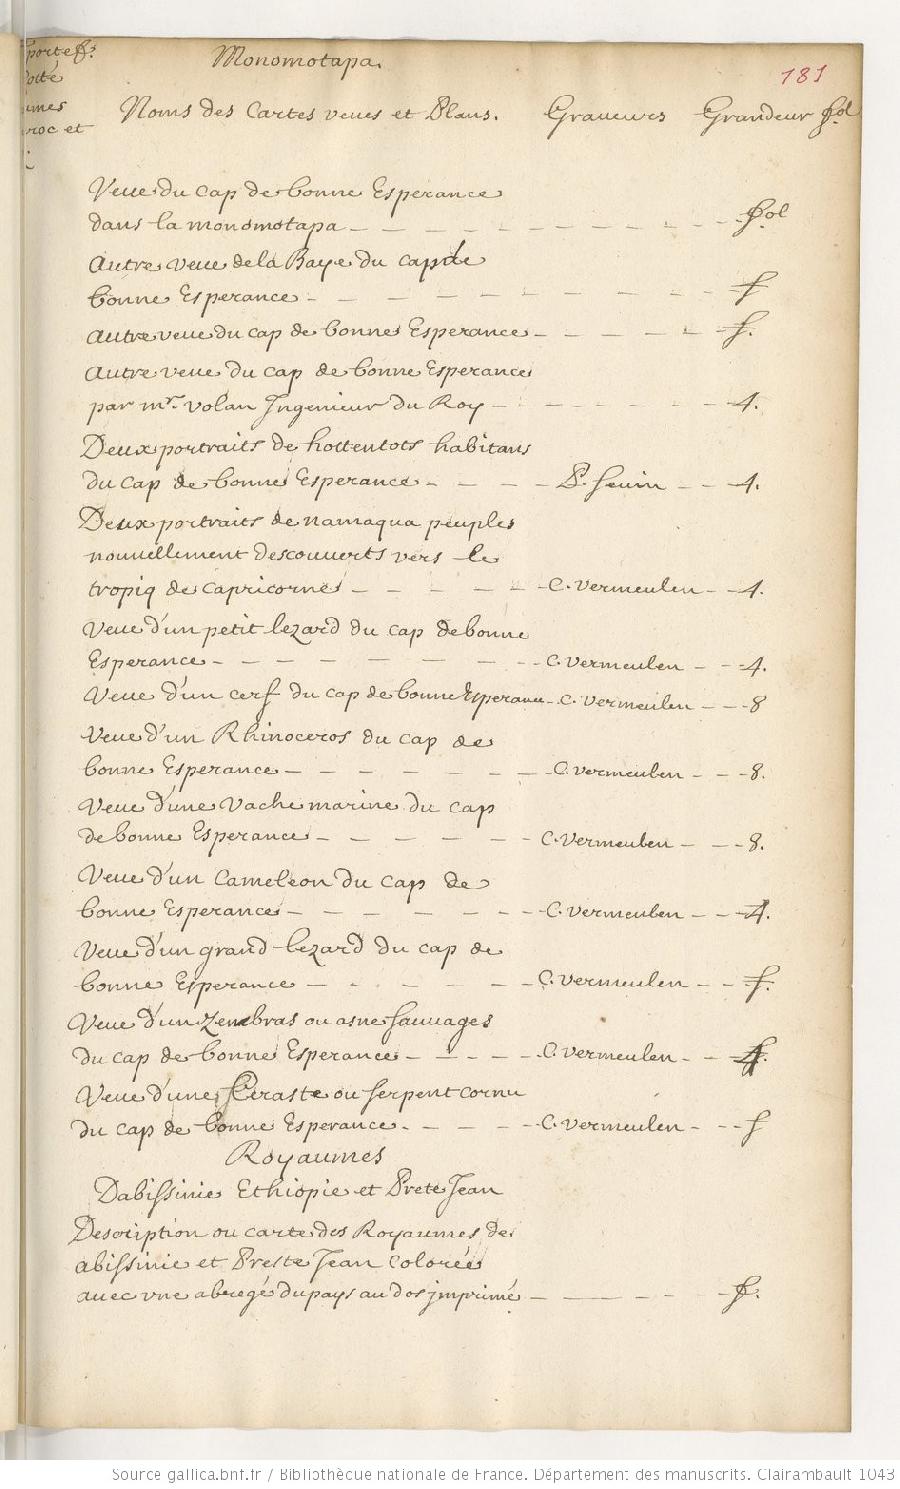 portef.
Monomotapa.
181
Noms des Cartes veues et Plans. Graveurs Grandeur fol
roc et
Veue du cap de bonne Esperance
dans la monomotapa - fol
Autre veue de la Baye du cap de
bonne Esperance - f
Autre veue du cap de bonne Esperance - f.
Autre veue du cap de bonne Esperance
par mr. volan Ingenieur du Roy - 4.
Deux portraits de hottentots habitans
du cap de bonne Esperance - P. Sevin - 4.
Deux portraits de namaqua peuples
nouvellement descouverts vers le
tropiq de capricorne - C. Vermeulen - 4.
Veue d'un petit lezard du cap de bonne
Esperance - C. Vermeulen - 4.
Veue d'un cerf du cap de bonne Esperance - C. Vermeulen - 8
Veue d'un Rhinoceros du cap de
bonne Esperance - C. Vermeulen - 8.
Veue d'une Vache marine du cap
de bonne Esperance - C. Vermeulen - 8.
Veue d'un Cameleon du cap de
bonne Esperance - C. Vermeulen - 4.
Veue d'un grand lezard du cap de
bonne Esperance - C. Vermeulen - f.
Veue d'un Zembras ou asne sauvages
du cap de bonne Esperance - C. Vermeulen - f.
Veue d'une Ceraste ou serpent cornu
du cap de bonne Esperance - C. Vermeulen - f
Royaumes
Dabissinie Ethiopie et Prete Jean
Description ou carte des Royaumes de
abissinie et Preste Jean colorée
avec une abregé du pays au dos jmprimé - f.
Source gallica.bnf.fr / Bibliothèque nationale de France. Département des manuscrits. Clairambault 1043